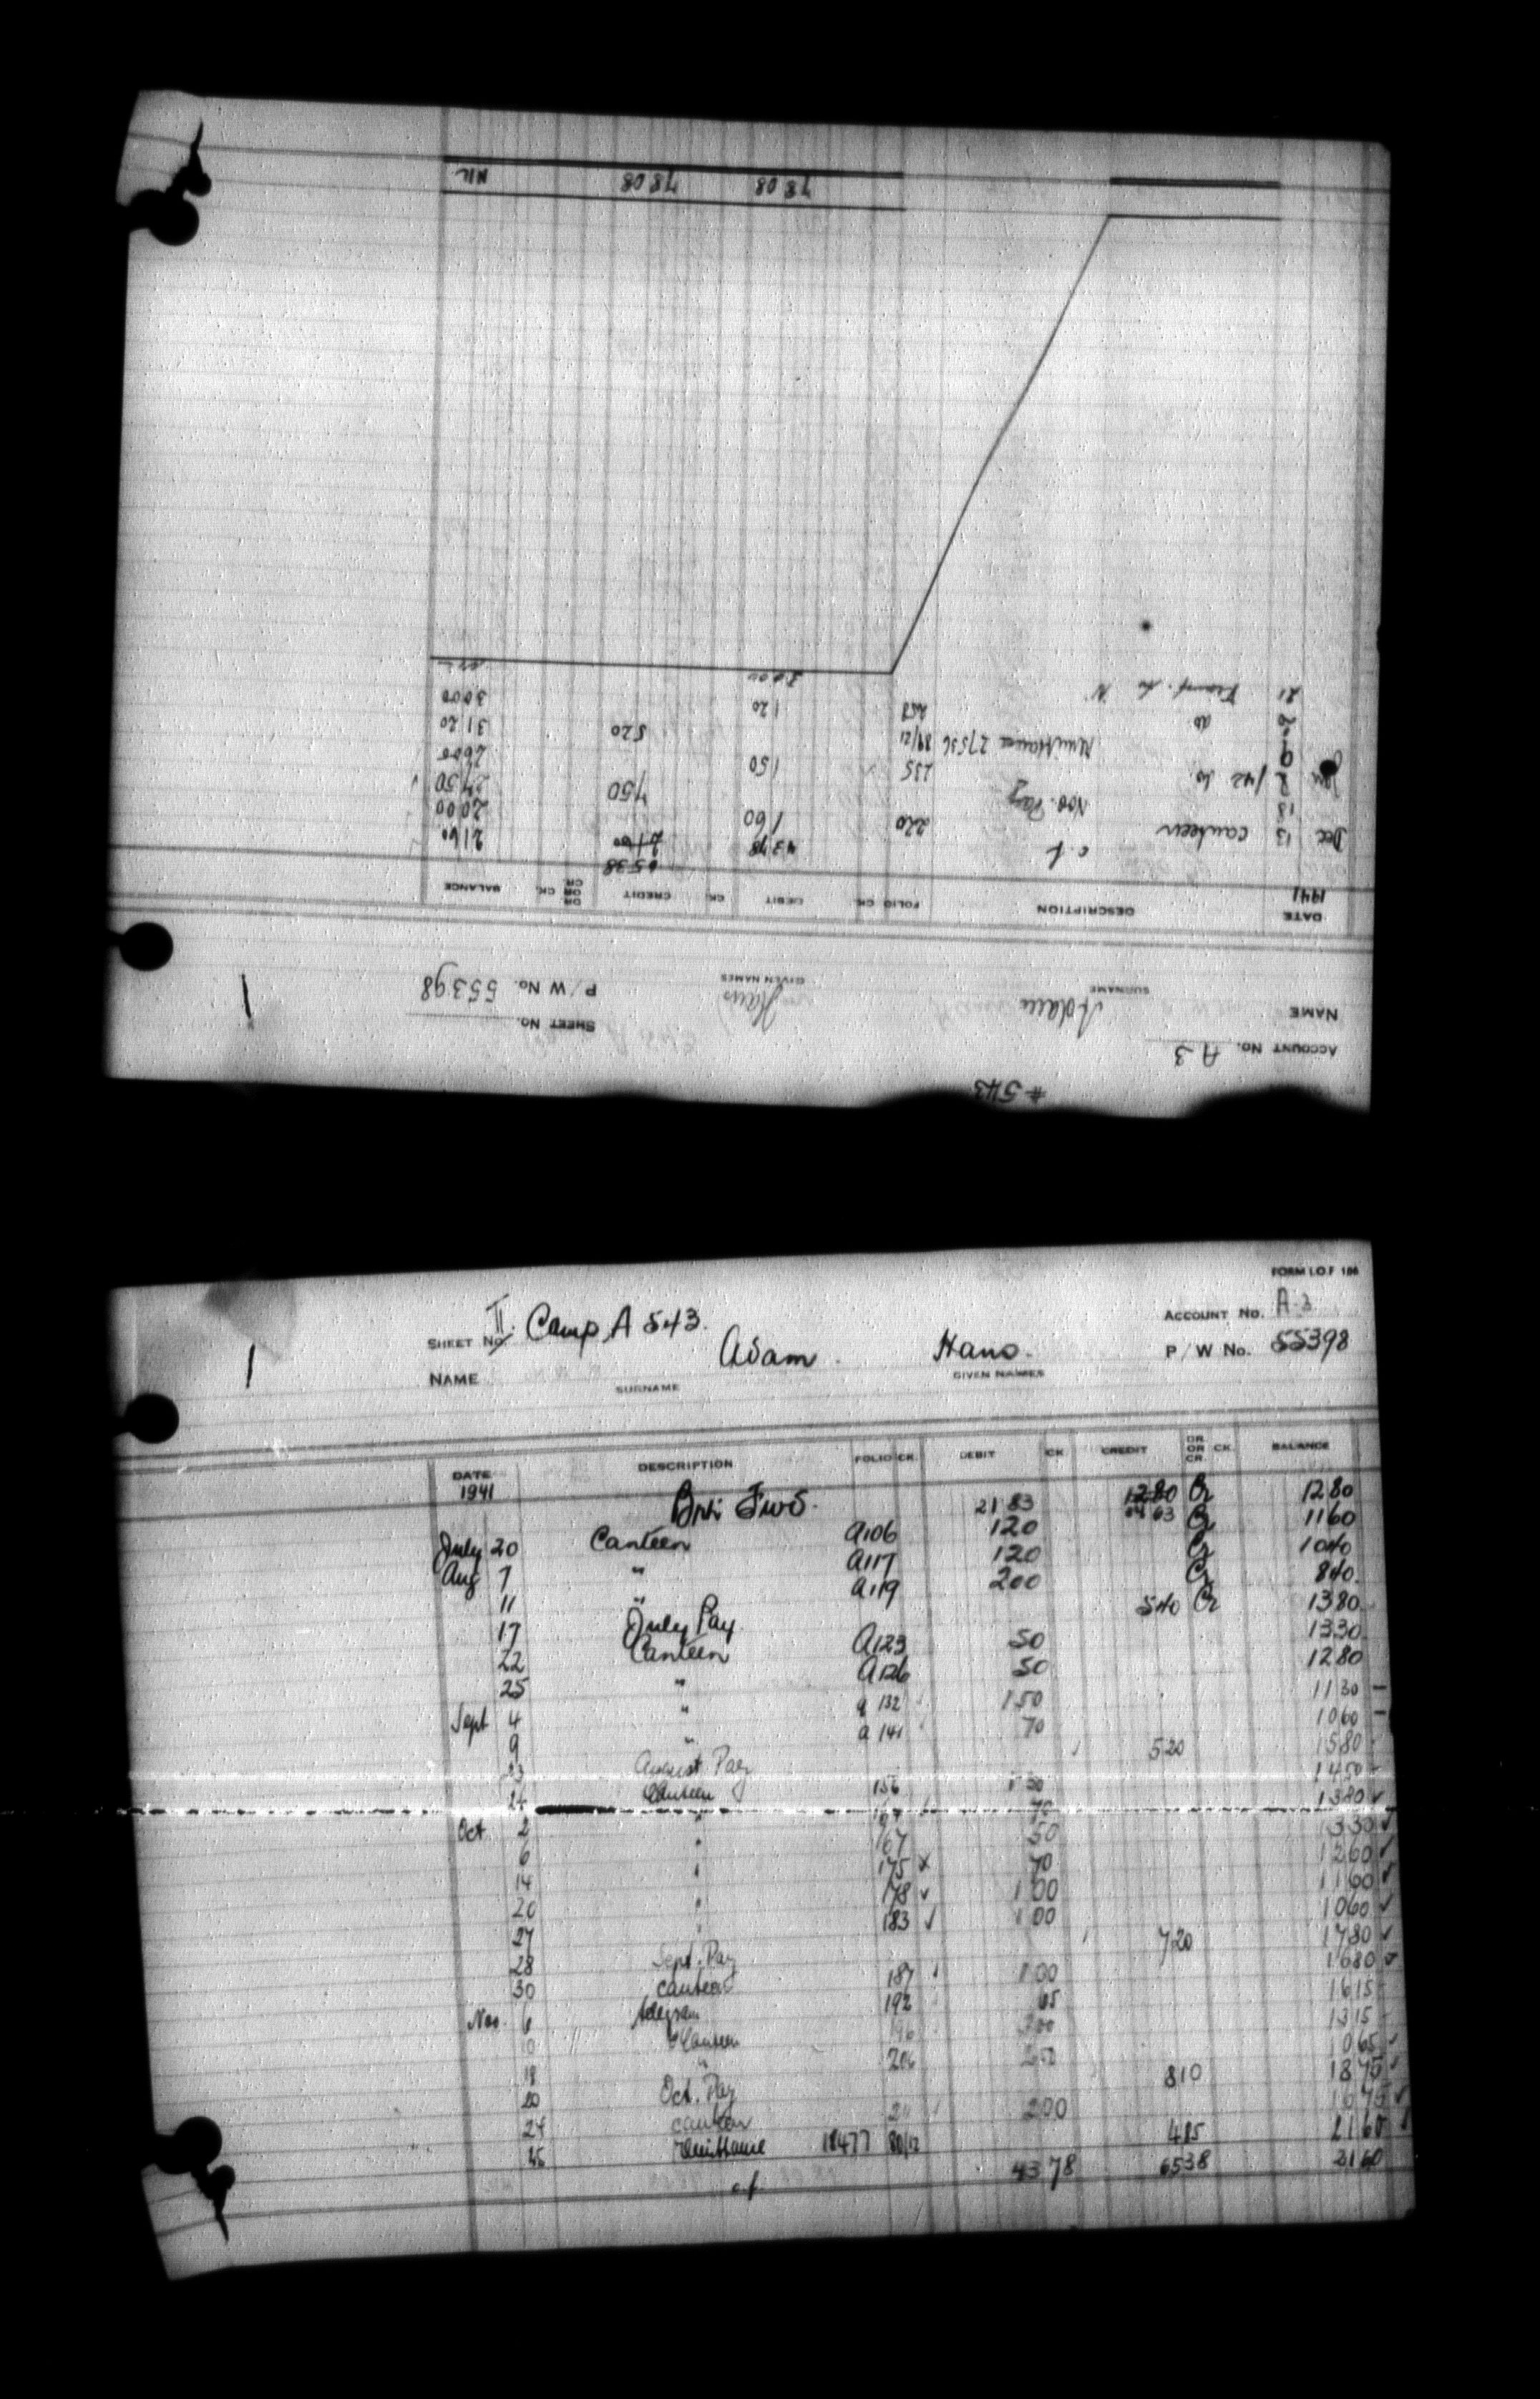 # 543
ACCOUNT No. A 3
SHEET No.
NAME Adam Hans P/W No. 55398
SURNAME GIVEN NAMES
DATE DESCRIPTION FOLIO CK. DEBIT CK. CREDIT DR. OR CR. CK. BALANCE
1941
c.f. 4378 6538 2160 2160
Dec 13 Canteen 220 160 2000
18 Nov. Pay 750 2750
Jan 2 /42 do. 235 150 2600
9 Remittance 27536 89/21 520 3120
20 do 258 120 3000
21 Transf. to N 3000 NIL
7808 7808 NIL
FORM I.O.F 166
SHEET No. II. Camp A 543. ACCOUNT No. A-3
NAME Adam. Hans. P/W No. 55398
SURNAME GIVEN NAMES
DATE DESCRIPTION FOLIO CK. DEBIT CK. CREDIT DR. OR CR. CK. BALANCE
1941
Brt. Fwd. 2183 1280 Cr 1280
3463
July 20 Canteen A106 120 Cr 1160
Aug 7 " A117 120 Cr 1040
11 " A119 200 Cr 840.
17 July Pay 540 Cr 1380
22 Canteen A123 50 1330
25 " A126 50 1280
Sept 4 " a 132 150 1130 –
9 " a 141 70 1060 –
13 August Pay 520 1580
24 Canteen 156 130 1450
Oct 2 " 70 1380 ✓
6 " 167 50 1330 ✓
14 " 175 70 1260 ✓
20 " 178 ✓ 100 1160 ✓
27 " 183 ✓ 100 1060 ✓
28 Sept. Pay 720 1780 ✓
30 Canteen 187 100 1680 ✓
Nov. 6 telegram 192 65 1615
10 Canteen 196 300 1315
18 " 206 250 1065 ✓
20 Oct. Pay 810 1875 ✓
24 Canteen 200 1675 ✓
26 Remittance 18477 80/12 485 2160
c.f. 4378 6538 2160